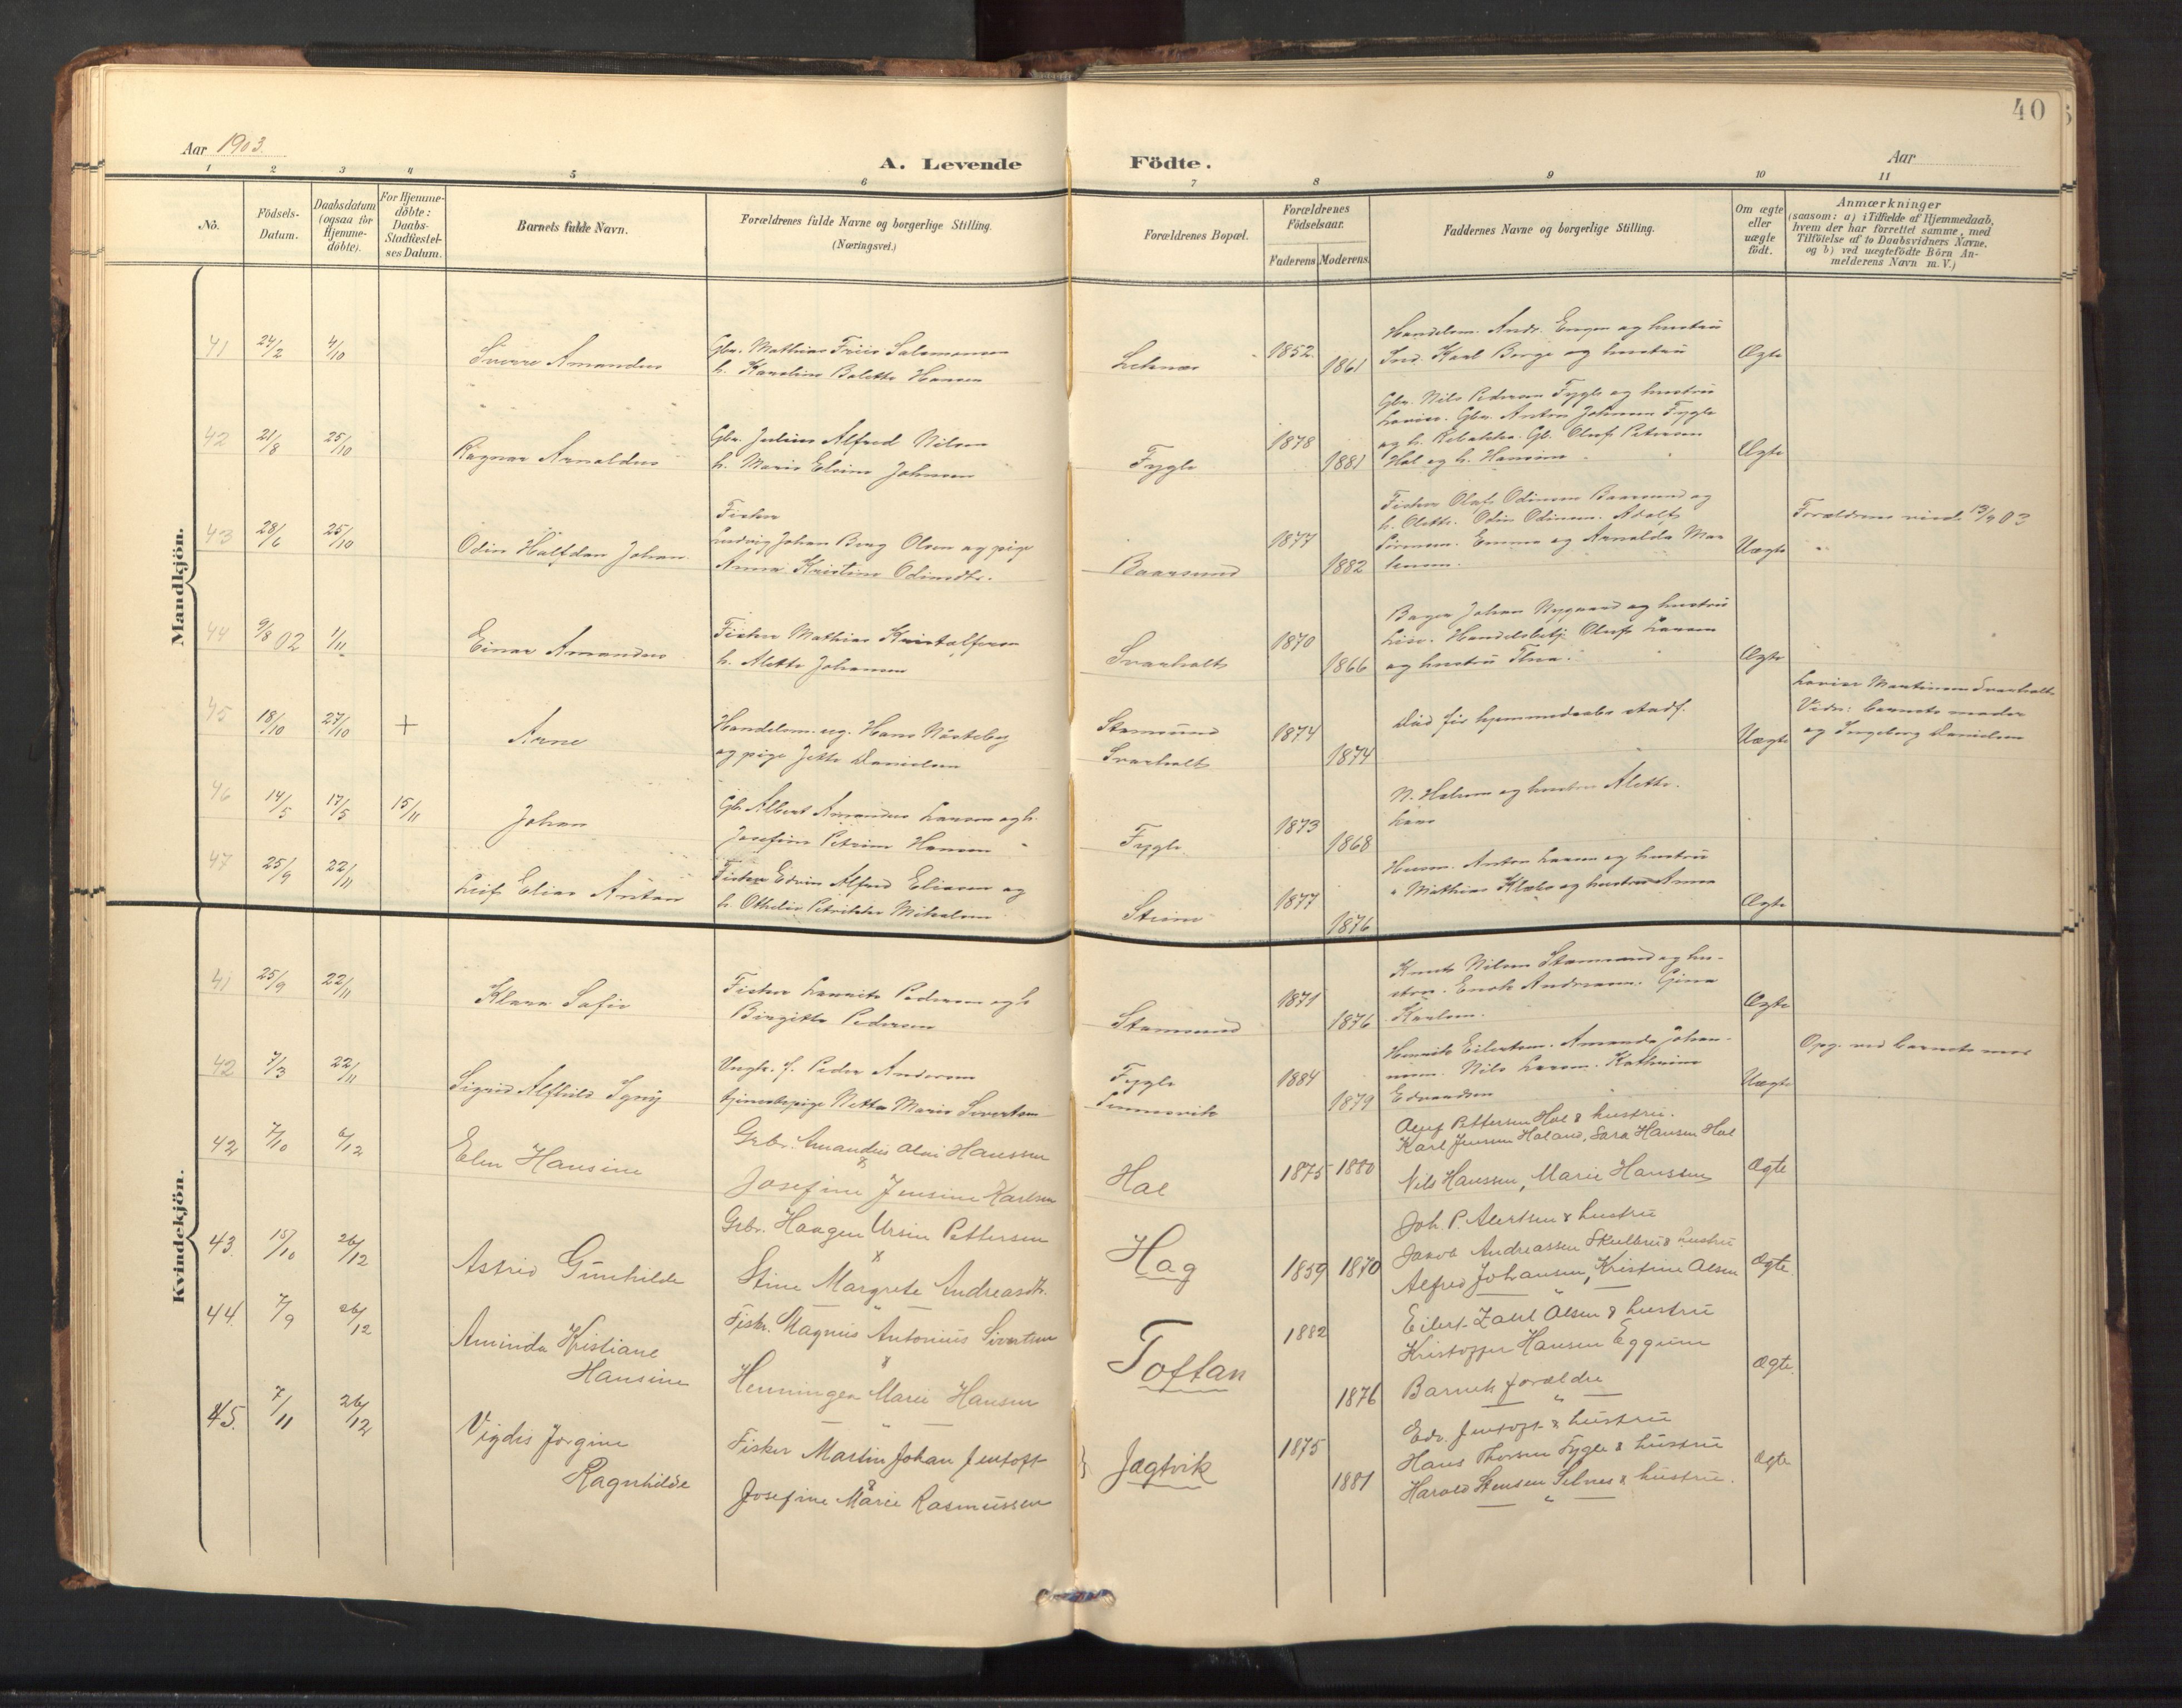 40
Aar 1903.
A. Levende Födte.
Aar
1 2 3 4 5 6 7 8 9 10 11
No.
Födsels-Datum.
Daabsdatum (ogsaa for Hjemme-döbte).
For Hjemme-döbte: Daabs-Stadfæstel-ses Datum.
Barnets fulde Navn.
Forældrenes fulde Navne og borgerlige Stilling.
(Næringsvei.)
Forældrenes Bopæl.
Forældrenes Födselsaar.
Faderens Moderens
Faddernes Navne og borgerlige Stilling.
Om ægte eller uægte födt.
Anmærkninger
(saasom: a) i Tilfælde af Hjemmedaab, hvem der har forrettet samme, med Tilföielse af to Daabsvidners Navne, og b) ved uægtefödte Börn Anmelderens Navn m. V.)
Mandkjön.
41 24/2 4/10 Sverre Amandus
Gbr. Mathias Friis Salamonsen
h. Karoline Bolette Hansen
Leknes 1852 1861
Handelsm. Andr. Engen og hustru
Karl Berge og hustru
Ægte
42 21/8 25/10 Ragnar Arnoldus
Gbr. Julius Alfred Nilsen
h. Marie Elvine Johnsen
Fygle 1878 1881
Gbr. Nils Pedersen Fygle og hustru
Lovise. Gbr. Anton Johnsen Fygle
og h. Rebekka. Gb. Oluf Petersen
Hol og h. Hansine
Ægte
43 28/6 25/10 Odin Halfdan Johan
Fisker
Ludvig Johan Berg Olsen og pige
Anna Kristine Odinsdtr.
Baarsund 1877 1882
Fisker Olaf Odinsen Baarsund og
h. Olette. Odin Odinsen. Adolf
Sörensen. Emma og Arnolda
Uægte
Forældrene viede 13/9 03
44 9/8 02 1/11 Einar Amandus
Fisker Mathias Kristoffersen
h. Alette Johansen
Svarholt 1870 1866
Bager Johan Nygaard og hustru
Lise. Handelsbetj. Oluf Larsen
og hustru Thea.
Ægte
45 18/10 27/10 + Arne
Handelsm. ug. Hans Nösteby
og pige Jette Danielsen
Stamsund
Svarholt
1874 1874
Död för hjemmedaabs stadf.
Uægte
Lovise Martinsen Svarholt
Vidn: barnets moder
og Ingeborg Danielsen
46 14/5 17/5 15/11 Johan
Gb. Albert Amandus Larsen og h.
Josefine Petrine Hansen
Fygle 1873 1868
N. Halsen og hustru Alette.
47 25/9 22/11 Leif Elias Anton
Fisker Edvin Alfred Eliasen og
h. Othelie Petrikke Mikalsen
Steine 1877 1876
Husm. Anton Larsen og hustru
" Mathias Klæbo og hustru Anna
Ægte
Kvindekjön.
41 25/9 22/11 Klara Sofie
Fisker Laurits Pedersen og h.
Birgitte Pedersen
Stamsund 1871 1876
Knut Nilsen Stamsund og hu-
stru. Enok Andreasen. Gina
Karlsen.
Ægte
42 7/3 22/11 Sigrid Alfhild Syniy
Ungk. f. Peder Andersen
tjenestepige Netta Marie Sivertsen
Fygle
Sennesvik
1884 1879
Henrik Eilertsen. Amanda Johan-
nesen. Nils Larsen. Kathrine
Edvardsen
Uægte
Opg. ved barnets mor
42 7/10 6/12 Elen Hansine
Grbr. Amandus Olai Hanssen
&
Josefine Jensine Karlsen
Hol 1875 1880
Oluf Pettersen Hol & hustru.
Karl Jensen Holand, Sara Hansen Hol
Nils Hanssen, Marie Hanssen
Ægte
43. 15/10 26/12 Astrid Gunhilde
Grbr. Haagen Ursin Pettersen
&
Stine Margrete Andreasdtr.
Hag 1859 1870
Joh. P. Alertsen & hustru
Jakob Andreassen Skulbru & hustru
Alfred Johansen, Kristine Olsen
Ægte.
44. 7/9 26/12 Aminda Kristiane
Hansine
Fisker. Magnus Antonius Sivertsen
&
Henningea Marie Hansen
Toftan 1882 1876
Eilert Zahl Olsen & hustru
Kristoffer Hansen Eggum
Barnets forældre
Ægte.
45. 7/11 26/12 Vigdis Jorgine
Ragnhilde
Fisker Martin Johan Jentoft
&
Josefine Marie Rasmussen
Jagtvik 1875 1881
Edv. Jentoft & hustru
Hans Thorsen Fygle & hustru
Harald Stensen Selnes & hustru.
Ægte